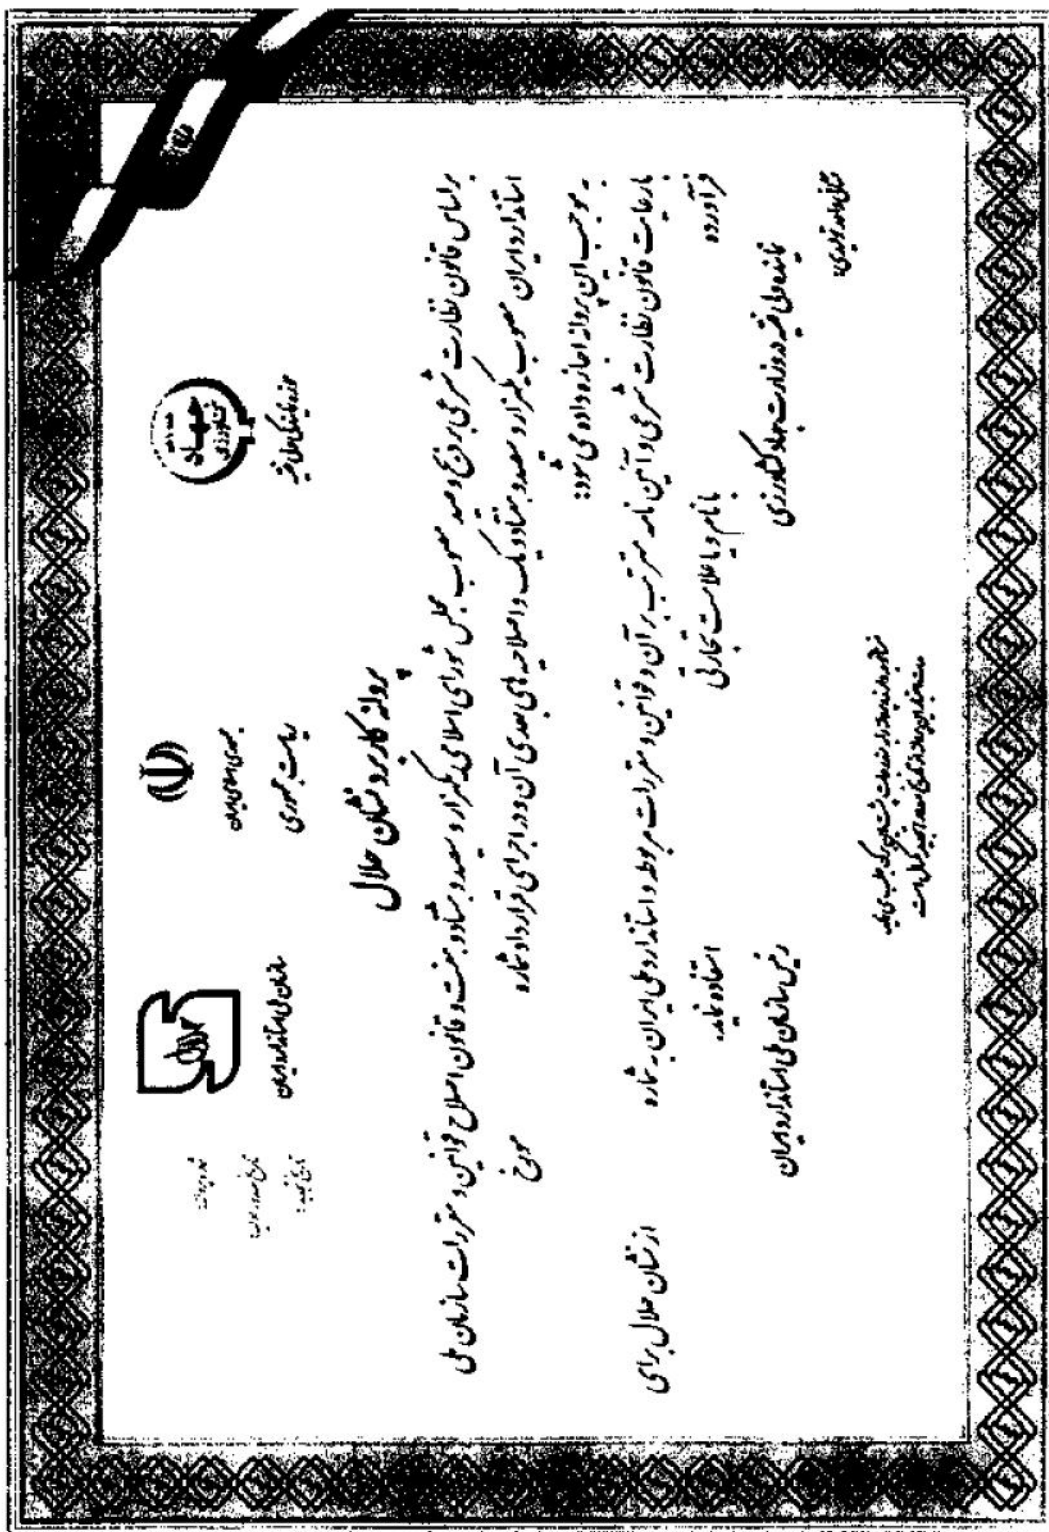 جهاد
کشاورزی
حوزه نمایندگی ولی فقیه
جمهوری اسلامی ایران
ریاست جمهوری
حلال
سازمان ملی استاندارد ایران
شماره پروانه:
تاریخ صدور اولیه:
تاریخ تمدید:
پروانه کاربرد نشان حلال
براساس قانون نظارت شرعی بر ذبح و صید مصوب مجلس شورای اسلامی یکهزار و سیصد و هشتاد و هفت و قانون اصلاح قوانین و مقررات سازمان ملی
استاندارد ایران مصوب یکهزار و سیصد و هفتاد و یک و اصلاحیه های بعدی آن و در اجرای قرارداد شماره مورخ
به موجب این پروانه اجازه داده می شود:
با رعایت قانون نظارت شرعی و آئین نامه مترتب بر آن و قوانین و مقررات مربوطه و استاندارد ملی ایران به شماره از نشان حلال برای
فرآورده با نام و یا علامت تجارتی استفاده نماید.
نماینده ولی فقیه در وزارت جهاد کشاورزی
رئیس سازمان ملی استاندارد ایران
نشانی واحد تولیدی: